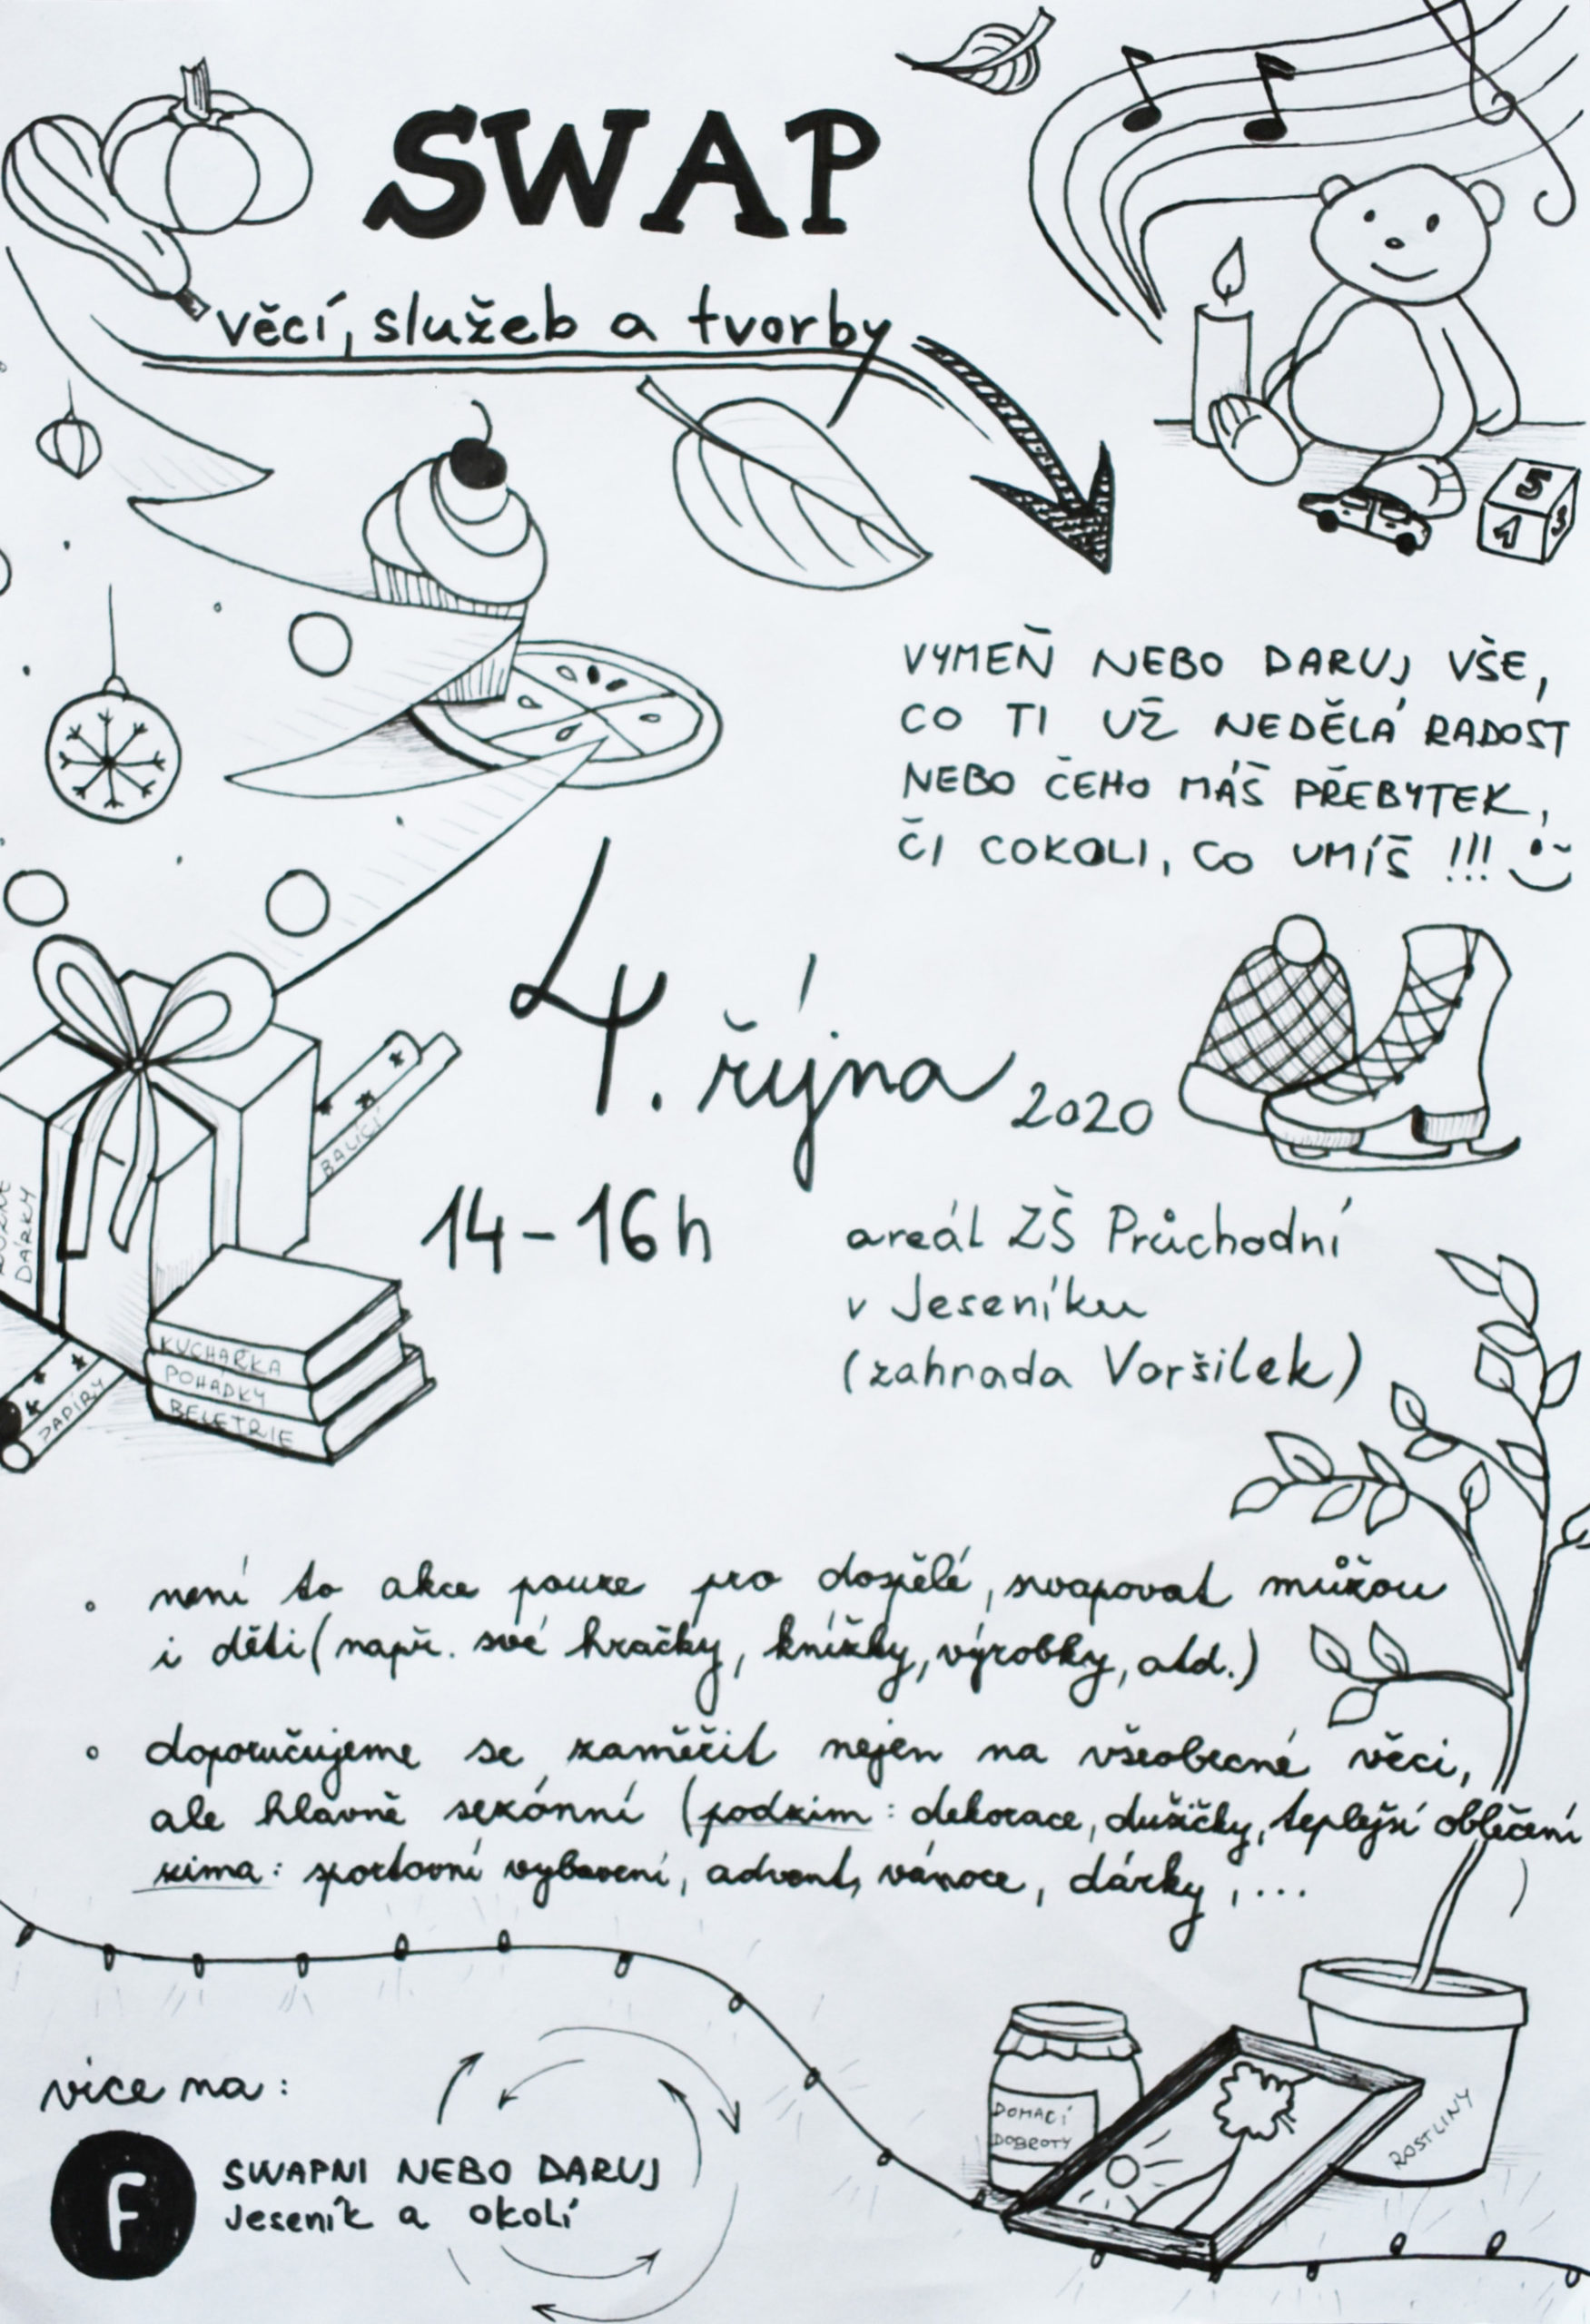 SWAP
věcí, služeb a tvorby
5
1
3
VYMEŇ NEBO DARUJ VŠE,
CO TI UŽ NEDĚLÁ RADOST
NEBO ČEHO MÁŠ PŘEBYTEK,
ČI COKOLI, CO UMÍŠ !!!
4. října 2020
BALÍCÍ
DÁRKY
14-16h
areál ZŠ Průchodní
v Jeseníku
(zahrada Voršilek)
KUCHAŘKA
POHÁDKY
BELETRIE
PAPÍRY
• není to akce pouze pro dospělé, swapovat můžou
i děti (např. své hračky, knížky, výrobky, atd.)
• doporučujeme se zaměřit nejen na všeobecné věci,
ale hlavně sezónní (podzim: dekorace, dušičky, teplejší oblečení
zima: sportovní vybavení, advent, vánoce, dárky, ...
více na:
F
SWAPNI NEBO DARUJ
Jeseník a okolí
DOMACÍ
DOBROTY
ROSTLINY